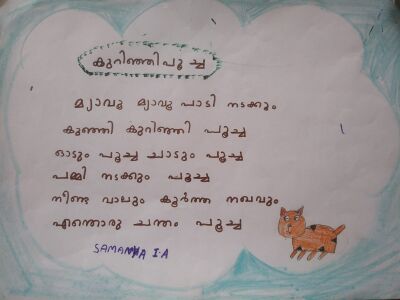 കുറിഞ്ഞിപൂച്ച
മ്യാവൂ മ്യാവൂ പാടി നടക്കും
കുഞ്ഞി കുറിഞ്ഞി പൂച്ച
ഓടും പൂച്ച ചാടും പൂച്ച
പമ്മി നടക്കും പൂച്ച
നീണ്ട വാലും കൂർത്ത നഖവും
എന്തൊരു ചന്തം പൂച്ച
SAMANHA I.A